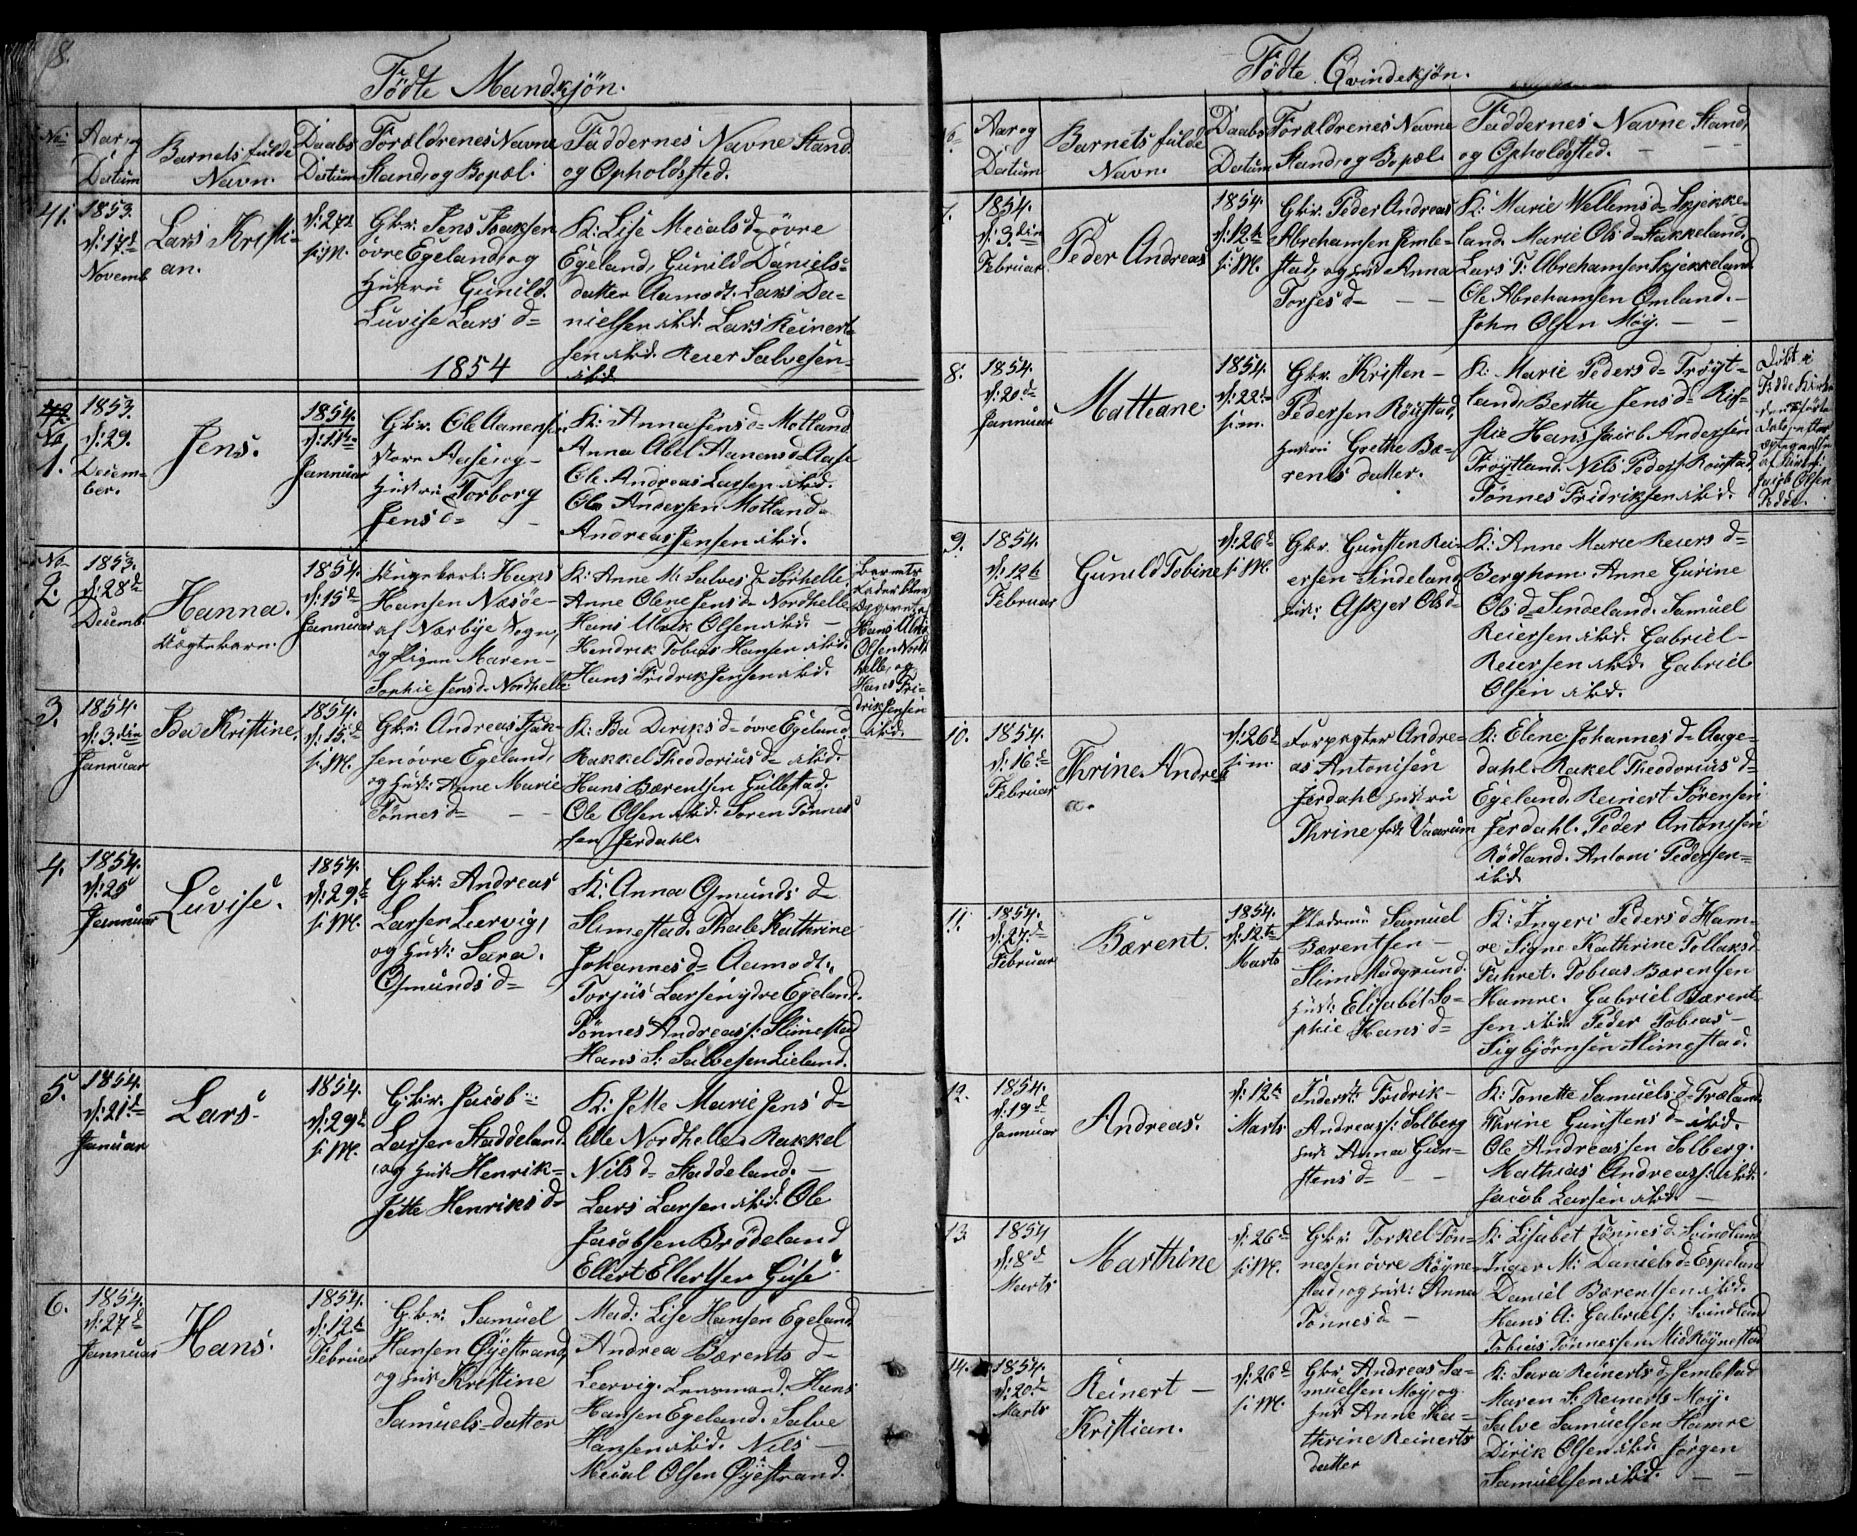 8.
Fødte Mandkjøn.
No Aar og Datum
Barnets fulde Navn.
Daabs Datum
Forældrenes Navne Stand, og Bopæl.
Faddernes Navne Stand og Opholdsted.
41. 1853. d: 17de Novemb.
Lars Kristian.
d: 27de
Gbr. Jens Isaksen
øvre Egeland, og
Hustru Gunild
Luvise Lars d=
K: Lise Micals d= øvre
Egeland, Gunild Daniels=
datter Aamodt. Lars Da=
nielsen ibid. Lars Reinert=
sen ibid. Reier Salvesen
ibid.
1854
42
No 1. 1853. d: 29. December.
Jens.
1854. d: 11te Jannuar
Gbr. Ole Aanensen
Store Aase, og
Hustru Torborg
Jens d=
K: Anna Jens d= Motland
Anna Abel Aanens d= Aase
Ole Andreas Larsen ibid.
Ole Andersen Motland.
Andreas Jensen ibid.
No 2. 1853. d: 28de Decemb.
Hanna.
Uægtebarn.
1854. d: 15de Jannuar
Ungekarl: Hans
Hansen Næsøe
af Nærbye Sogn,
og Pigen Maren
Sophie Jens d= Nordhelle
K: Anne M. Salves d= Sørhelle
Anne Olene Jens d= Nordhelle
Hans Ulrik Olsen ibid.
Hendrik Tobias Hansen ibid.
Hans Fridrik Jensen ibid.
Hans Ulrik
Olsen Nord=
helle, og
Hans Fri=
drik Jensen
ibid.
3. 1854. d: 3. din Jannuar
Ida Kristine.
1854. d: 15de f: M.
Gbr. Andreas Isak=
sen øvre Egeland,
og Hust: Anne Marie
Tønnes d=
K: Ida Diriks d= øvre Egeland
Rakkel Theodorius d= ibid.
Hans Bærentsen Gullestad.
Ole Olsen ibid. Søren Tønnes=
sen Jerdahl.
4. 1854. d: 25 Jannuar
Luvise.
1854. d: 29de f: M.
Gbr. Andreas
Larsen Leervig,
og Hust: Sara
Osmunds d=
K: Anna Osmunds d=
Slimestad. Thale Kathrine
Johannes d= Aamodt.
Torjus Larsen ydre Egeland.
Tønnes Andreas s: Slimestad
Hans S: Salvesen Lieland.
5. 1854. d: 21de Januar
Lars.
1854. d: 29de f: M.
Gbr. Jacob
Larsen Staddeland
og Hust. Henrik=
jette Henriks d=
K: Jette Marie Jens d=
lille Nordhelle. Rakkel
Nils d= Staddeland.
Lars Larsen ibid. Ole
Jacobsen Brødeland
Ellert Ellertsen Guse
6. 1854. d: 27de Jannuar
Hans.
1854. d: 12te Februar
Gbr. Samuel
Hansen Øyestrand,
og Hust Kristine
Samuels=datter
Mad: Lise Hansen Egeland
Andrea Bærents d=
Leervig. Lensmand Hans
Hansen Egeland. Salve
Hansen ibid. Nils
Mical Olsen Øyestrand.
Fødte Qvindekjøn.
Aar og Datum
Barnets fulde Navn.
Daabs Datum
Forældrenes Navne Stand, og Bopæl.
Faddernes Navne Stand, og Opholdsted.
7. 1854. d: 3. din Februar
Peder Andreas
1854. d: 12te f: M.
Gbr. Peder Andreas
Abrehamsen Jemle=
stad, og Hust Anna
Torjes d=
K: Marie Wellems d= Skjekke=
land. Marie Ols d= Stakkeland.
Lars T: Abrehamsen Skjekkeland
Ole Abrehamsen Omland.
John Olsen Moy.
8. 1854. d: 20de Jannuar
Matteane
1854. d: 22de f: m.
Gbr. Kristen
Pedersen Røustad,
Hustru Grethe Bæ=
rents datter.
K: Marie Peders d= Trøyt=
land, Berthe Jens d=
Hans Jacob Andersen
Trøytland. Nils Peders. Roustad
Tønnes Fridriksen ibid.
Døbt i
Fede Kirke
Jacob Olsen
9. 1854. d: 12te Februar
Gunild Tobine
d: 26de f: M.
Gbr. Gunsten Rei=
ersen Sindeland
Hust: Askjer Ols d=
K: Anne Marie Reiers d=
Berghom. Anne Gurine
Ols d= Sindeland. Samuel
Reiersen ibid. Gabriel
Reiersen ibid. Gabriel
Olsen ibid.
10. 1854. d: 16de Februar
Thrine Andrea.
d: 26de f: m.
Forpagter Andre=
as Antonisen
Jerdahl Hustru
Thrine født Vaarum
K: Elene Johannes d= Aage=
dahl. Rakel Theodorius d=
Egeland. Reinert Sørensen
Jerdahl. Peder Antonisen
Rødland. Antoni Pedersen
ibid.
11. 1854. d: 27de Februar
Bærent.
1854. d: 12te Marts
Samuel
Bærentsen
Slime
Hust: Elisabet So=
phie Hans d=
K: Ingeri Peders d= Ham=
re. Signe Kathrine Tollaks d=
Tobias Bærentsen
Hamre. Gabriel Bærent=
sen ibid. Peder Tobias
Sigbjørnsen Slimestad.
12. 1854. d: 19de Jannuar
Andreas.
d: 12te Marts
Inderst: Fridrik
Andreas s: Solberg
Hust Anna Gun=
stens d=
K: Tonette Samuels d= Træland
Thrine Gunstens d= ibid.
Ole Andreassen Solberg.
Mathias Andreas s: ibid.
Jacob Larsen ibid.
13. 1854 d: 8de Marts
Marthine
d: 26de f: M.
Gbr. Torkel Tøn=
nessen øvre Røyne=
stad, og Hust: Anna
Tønnes d
K: Lisabet Tønnes d= Svindland
Inger M: Daniels d= Espeland
Daniel Bærentsen ibid.
Hans A: Gabriels s: Svindland
Tobias Tønnessen Mid Røynestad
14. 1854. d: 20de Marts
Reinert Kristian.
d: 26de f: M.
Gbr. Andreas Sa=
muelsen Moy, og
Hust Anne Ka=
thrine Reinerts
datter
K: Sara Reinerts d= Jemlestad
Maren S. Reinerts Moy.
Salve Samuelsen Hamre
Dirik Olsen ibid. Jørgen
Samuelsen ibid.